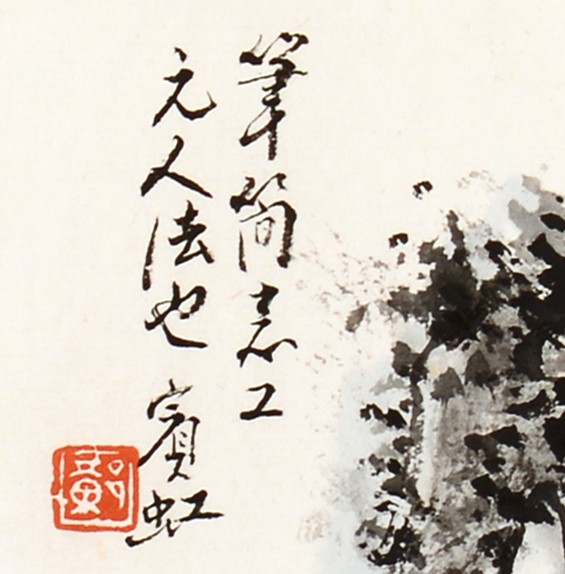 筆简意工
元人法也 賓虹